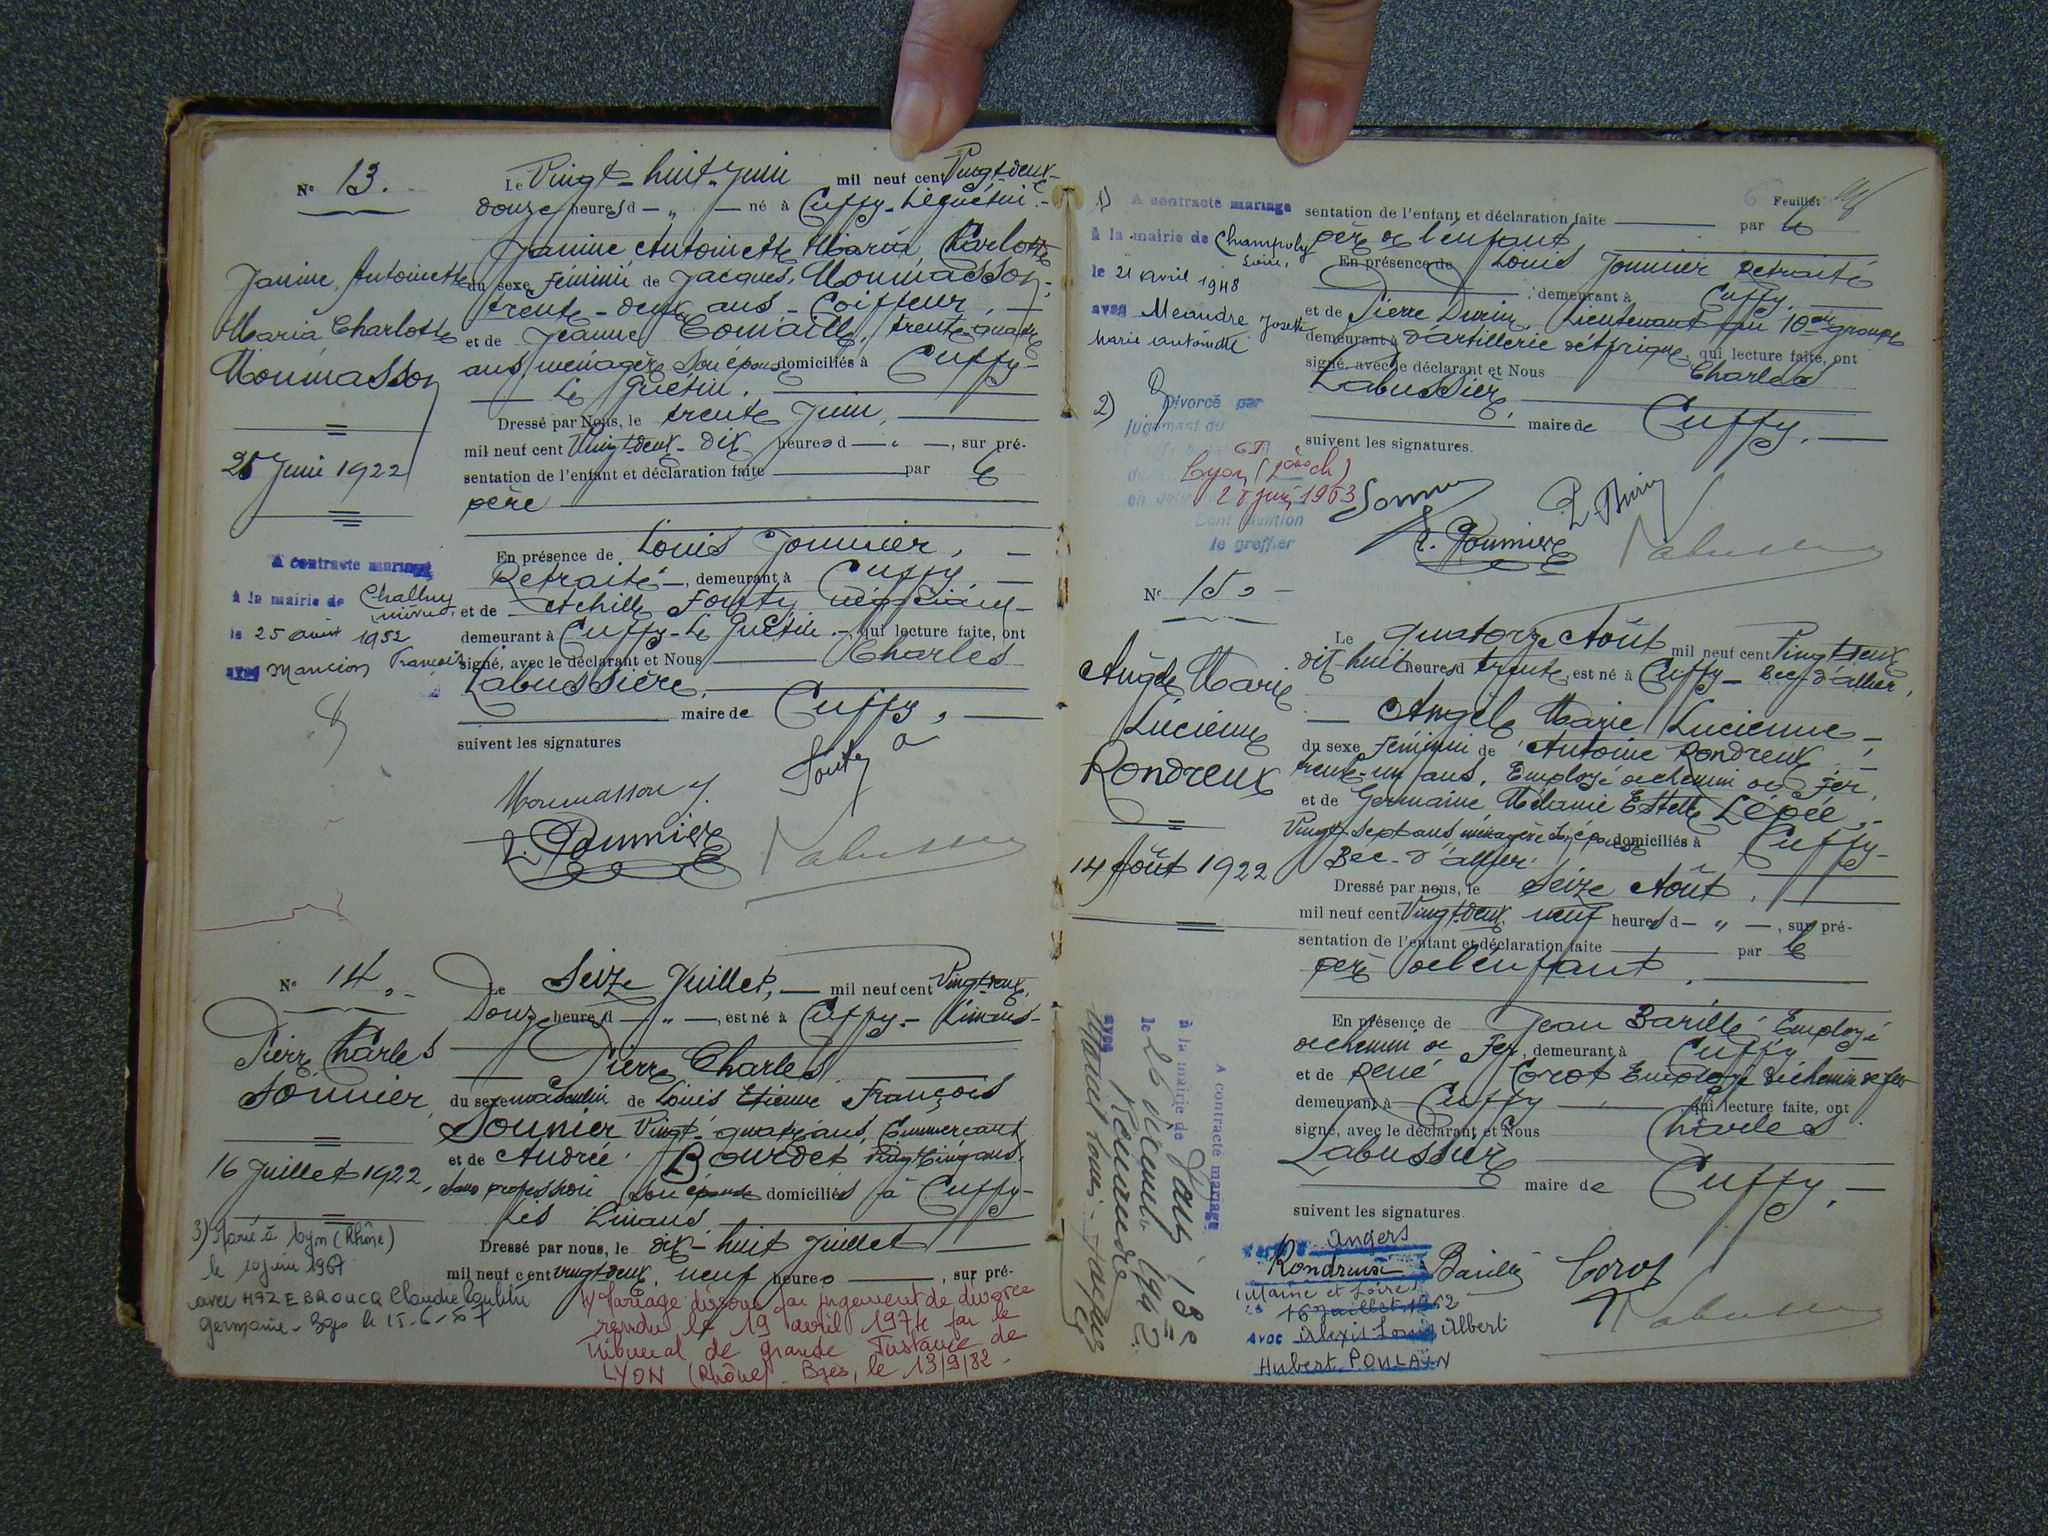 N° 13.
Janine Antoinette
Maria Charlotte
Monmasson
28 Juin 1922
A contracté mariage
à la mairie de Challuy
nièvre
le 25 août 1952
avec Mancion François
Le Vingt-huit Juin mil neuf cent Vingt-deux
douze heures d — „ — né à Cuffy-Le Guétin.-
Janine Antoinette Maria, Charlotte
du sexe féminin de Jacques, Monmasson,
trente-deux ans - Coiffeur, —
et de Jeanne trente-quatre
ans ménagère son épouse domiciliés à Cuffy-
— Le Guétin. —
Dressé par Nous, le trente Juin, —
mil neuf cent Vingt-deux - dix heures d — „ —, sur pré-
sentation de l'enfant et déclaration faite — par le
père —
En présence de Louis Jonnier, —
Retraité —, demeurant à Cuffy, —
et de Achille Fouty négociant —
demeurant à Cuffy-Le Guétin. -, qui lecture faite, ont
signé, avec le déclarant et Nous — Charles
Labussière, —
— maire de Cuffy, —
suivent les signatures
Monmasson J. Fouty A
Labussière
N° 14.-
Pierre Charles
Sounier
16 Juillet 1922,
3) Marié à Lyon (Rhône)
le 10 juin 1967
avec HAZEBROUCQ Claudie
Germaine - Bges le 15-6-67
Le Seize Juillet, — mil neuf cent Vingt-deux,
Douze heures d — „ —, est né à Cuffy. - Limaus-
— Pierre Charles, —
du sexe masculin de Louis Etienne François
Sounier Vingt-quatre ans, Commerçant
et de Andrée Bourdet Vingt cinq ans,
sans profession son épouse domiciliés à Cuffy-
Les Limaus —
Dressé par nous, le dix-huit Juillet —
mil neuf cent vingt-deux, neuf heures —, sur pré-
4) Mariage dissous par jugement de divorce
rendu le 19 avril 1974 par le
Tribunal de grande Instance de
LYON (Rhône) - Bges, le 13/9/82 -
Feuillet
1) A contracté mariage
à la mairie de Champoly
Loire,
le 21 avril 1948
avec Meandre Josette
Marie Antoinette
sentation de l'enfant et déclaration faite — par le
père de l'enfant —
En présence de Louis Jonnier Retraité
—, demeurant à Cuffy, —
et de Pierre Durin, Lieutenant au 10eme groupe
demeurant à d'artillerie d'Afrique, qui lecture faite, ont
signé, avec le déclarant et Nous Charles
Labussière, —
— maire de Cuffy, —
suivent les signatures.
2) Divorcé par
jugement du
Lyon
1963
Dont mention
le greffier
Labussière
N° 15.-
Angèle Marie
Lucienne
Rondreux
14 Août 1922
Le quatorze Août mil neuf cent Vingt-deux
dix-huit heures d trente, est né à Cuffy - Bec-d'allier,
— Angèle Marie Lucienne -,
du sexe féminin de Antoine Rondreux —,
trente-un ans, Employé de chemin de fer,
et de Germaine Mélanie Estelle Lépée,-
Vingt sept ans ménagère son épouse domiciliés à Cuffy-
Bec-d'allier. —
Dressé par nous, le Seize Août, —
mil neuf cent Vingt-deux neuf heures d — „ —, sur pré-
sentation de l'enfant et déclaration faite — par le
père de l'enfant, —
En présence de Jean Barillé Employé
de chemin de Fer, demeurant à Cuffy —
et de René Corot Employé de chemin de fer
demeurant à Cuffy — qui lecture faite, ont
signé, avec le déclarant et Nous Charles
Labussière —
— maire de Cuffy, —
suivent les signatures.
Rondreux Barillé Corot
Labussière
A contracté mariage
à la mairie de Paris 13e
le 26 1942
avec
Angers
(Maine et Loire)
le 16 Juillet 1952
avec Alexis Louis Albert
Hubert POULAIN